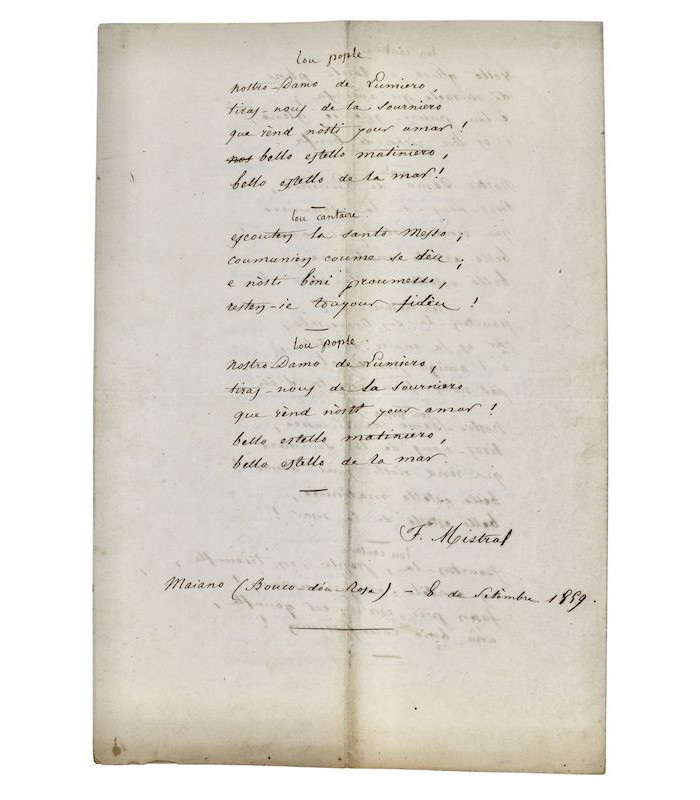 lou pople.
nostro-Damo de Lumiero,
tiras-nous de la sourniero
que rènd nòsti jour amar !
nos bello estello matiniero,
bello estello de la mar !
lou cantaire.
escouten la santo Messo,
coumunien coume se dèu,
e nòsti bòni proumesso,
resten-ie toujour fidèu !
lou pople.
nostro-Damo de Lumiero,
tiras-nous de la sourniero
que rènd nòsti jour amar !
bello estello matiniero,
bello estello de la mar.
F. Mistral
Maiano (Bouco-dóu-Rose) - 8 de Setèmbre 1859.